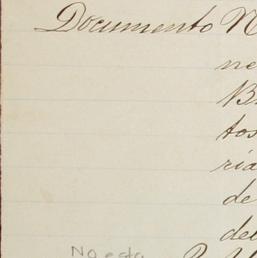 Documento N
ne
B
tos
ria
de
del
No esta